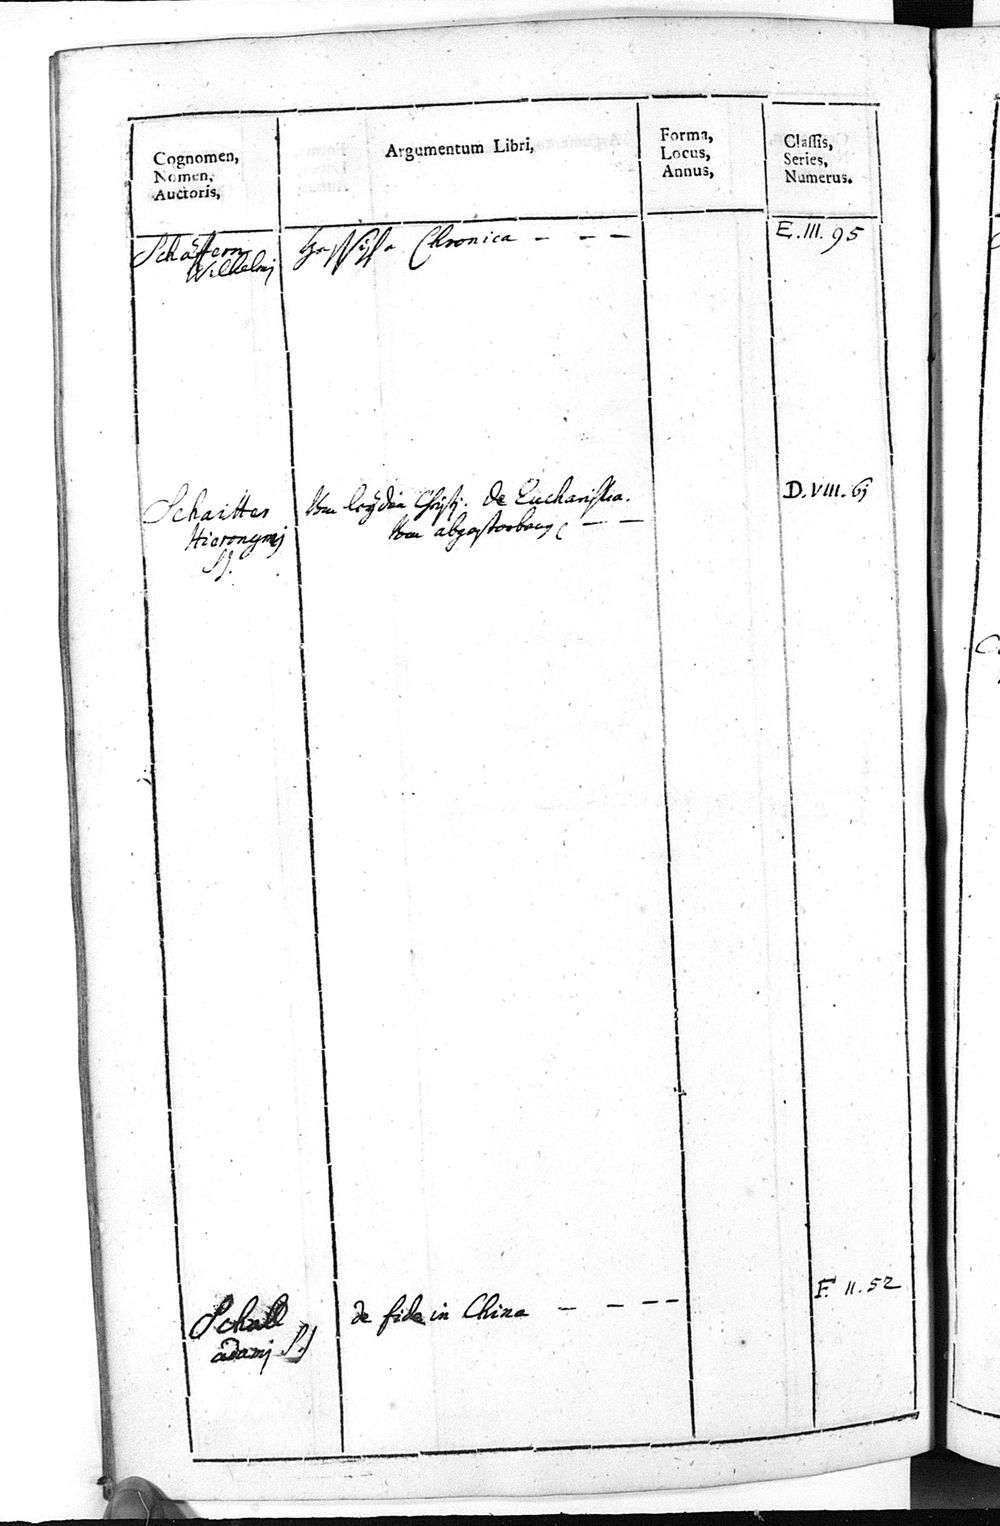 Cognomen,
Nomen,
Auctoris,
Argumentum Libri,
Forma,
Locus,
Annus,
Classis,
Series,
Numerus.
Schäffern
Wilhelmj
Chronica - - -
E. III. 95
Schaitter
Hieronymj
SJ.
Vom leyden Christj. De Eucharistia.
Vom abgestorbeng - -
D. VIII. 6
Schall
adamj S.J
de fide in China - - - -
F. II. 52